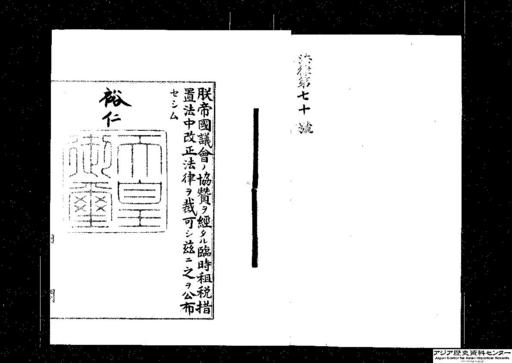 法律第七十號
朕帝國議會ノ協贊ヲ經タル臨時租税措
置法中改正法律ヲ裁可シ茲ニ之ヲ公布
セシム
裕仁
天皇御璽
アジア歴史資料センター
Japan Center for Asian Historical Records